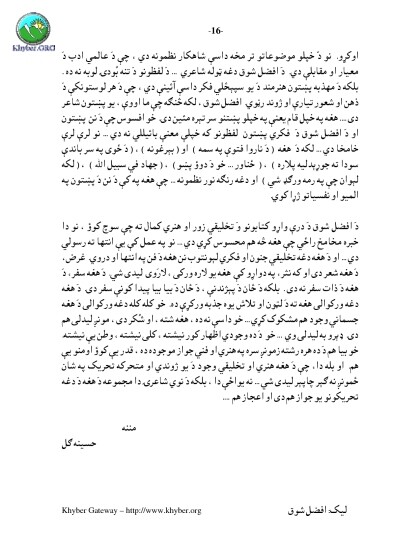 -16-
Khyber.ORG
اوکړو. نو دَ خپلو موضوعاتو تر مخه داسې شاهکار نظمونه دي ، چې دَ عالمي ادب دَ
معيار او مقابلې دي. دَ افضل شوق دغه ټوله شاعري ... دَ لفظونو دَ تنه بُودۍ لوبه نه ده.
بلکه دَ مهذبه پښتون هنرمند دَ يو سپېڅلي فکر داسې آئينې دي ، چې دَ هر لوستونکي دَ
ذهن او شعور تيارې او ژوند رڼوي. افضل شوق ، لکه څنګه چې ما اووې ، يو پښتون شاعر
دی .... هغه په خپل قام يعنې په خپلو پښتنو سر تېره مئين دی. خو افسوس چې دَ نن پښتون
او دَ افضل شوق دَ فکري پښتون لفظونو که خپلې معنې بائيللې نه دي ... نو لرې لرې
خامخا دي ... لکه دَ هغه ( دَ ناروا فتوې په سمه ) او ( بېرغونه ) ، ( دَ خُوی په سر باندې
سودا ته جوړېدليه پلاره ) ، ( ځناور ... خو دَ دوؤ پښو ) ، ( جهاد في سبيل الله ) ، ( لکه
لېوان چې په رمه ورګډ شي ) او دغه رنګه نور نظمونه ... چې هغه په کې دَ نن دَ پښتون په
الميو او نفسياتو ژړا کوي.
دَ افضل شوق دَ درې واړو کتابونو وَ تخليقي زور او هنري کمال ته چې سوچ کوؤ ، نو دا
خبره مخامخ راځي چې هغه څه هم محسوس کړي دي ... نو په عمل کې يې انتها ته رسولي
دي ... او دَ هغه دغه تخليقي جنون او فکري لېونتوب نن هغه دَ فن په انتها او دروي. غرض،
دَ هغه شعر دی او که نثر، په دواړو کې هغه يو لاره ورکی ، لاروی ليدی شي. هغه سفر، دَ
هغه دَ ذات سفر نه دی. بلکه دَ ځان دَ پېژندنې ، دَ ځان دَ بيا بيا پيدا کونې سفر دی. دَ هغه
دغه ورکوالی هغه ته دَ لټون او تلاش يوه جذبه ورکړې ده. خو کله کله دغه ورکوالی دَ هغه
جسماني وجود هم مشکوک کړي... خو داسې نه ده ، هغه شته ، او شُکر دی ، مونږ ليدلی هم
دی. ډېرو به ليدلی وي ... خو دَ ده وجودي اظهار کور نيشته ، کلی نيشته ، وطن يې نيشته
خو بيا هم دَ ده هره رشته زمونږ سره په هنري او فني جواز موجوده ده ، قدر يې کوؤ او منو يې
هم او بله دا ، چې دَ هغه هنري او تخليقي وجود دَ يو ژوندي او متحرکه تحريک په شان
ځمونږ نه ګېر چاپېر ليدی شي ... نه يواځې دا ، بلکه دَ نوې شاعرۍ دا مجموعه دَ هغه دَ دغه
تحريکونو يو جواز هم دی او اعجاز هم ....
مننه
حسينه ګل
Khyber Gateway – http://www.khyber.org
ليک: افضل شوق